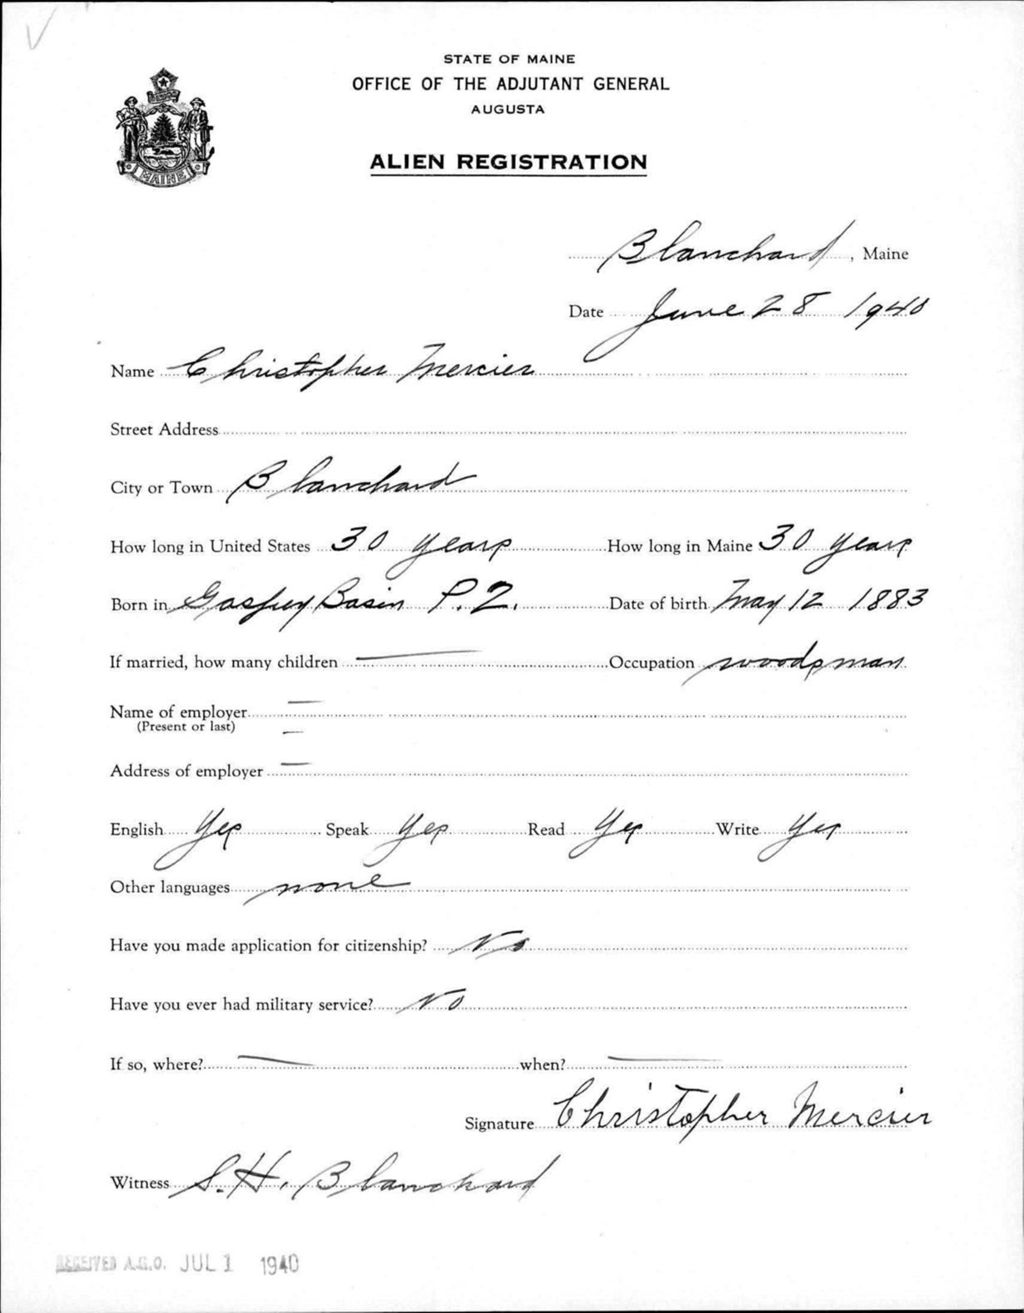 STATE OF MAINE
OFFICE OF THE ADJUTANT GENERAL
AUGUSTA
ALIEN REGISTRATION
MAINE
Blanchard, Maine
Date June 28 1940
Name Christopher Mercier
Street Address
City or Town Blanchard
How long in United States 30 years How long in Maine 30 years
Born in Gaspey Basin P.Q. Date of birth May 12 1883
If married, how many children — Occupation woodsman
Name of employer —
(Present or last) —
Address of employer —
English Yes Speak Yes Read Yes Write Yes
Other languages none
Have you made application for citizenship? No
Have you ever had military service? No
If so, where? — when? —
Signature Christopher Mercier
Witness S. H. Blanchard
RECEIVED A.G.O. JUL 1 1940